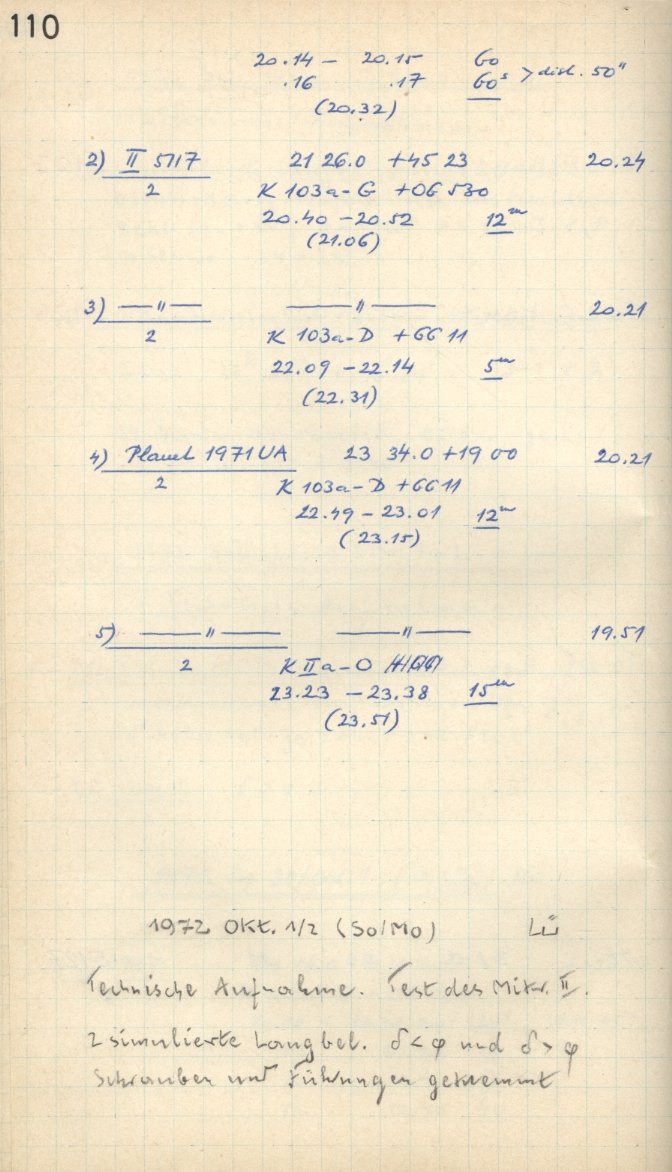 110
20.14 – 20.15 60
.16 .17 60ˢ > dist. 50"
(20.32)
2) II 5717 21 26.0 +45 23 20.24
2 K 103a-G +OG 530
20.40 – 20.52 12ᵐ
(21.06)
3) —"— —"— 20.21
2 K 103a-D +GG 11
22.09 – 22.14 5ᵐ
(22.31)
4) Planet 1971 UA 23 34.0 +19 00 20.21
2 K 103a-D +GG 11
22.49 – 23.01 12ᵐ
(23.15)
5) —"— —"— 19.51
2 K IIa-O
23.23 – 23.38 15ᵐ
(23.51)
1972 Okt. 1/2 (So/Mo) Lü
Technische Aufnahme. Test des Mikr. II.
2 simulierte Langbel. δ < φ und δ > φ
Schrauben und Führungen geklemmt